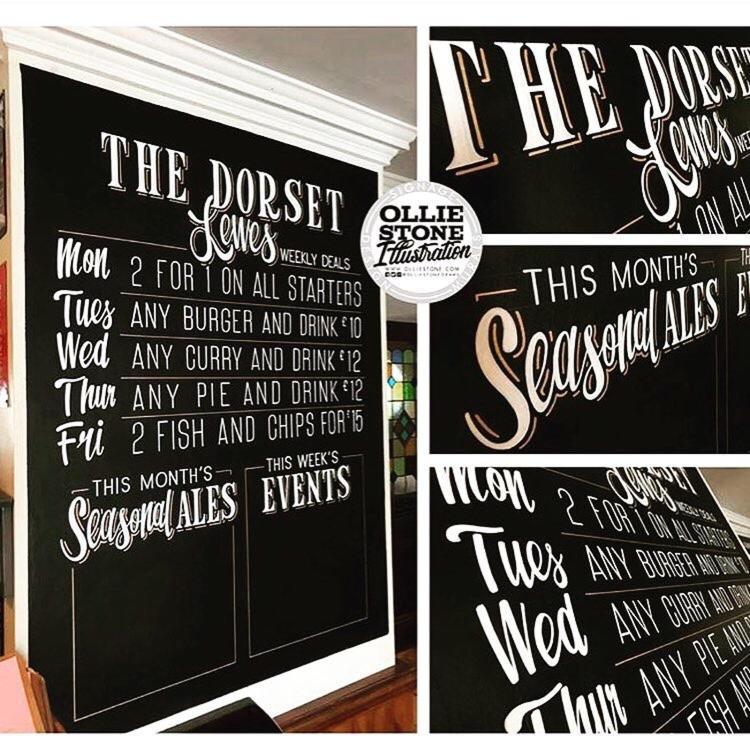 THE DORSET
Lewes
WEEKLY DEALS
Mon 2 FOR 1 ON ALL STARTERS
Tues ANY BURGER AND DRINK £10
Wed ANY CURRY AND DRINK £12
Thur ANY PIE AND DRINK £12
Fri 2 FISH AND CHIPS FOR £15
THIS MONTH'S
Seasonal ALES
THIS WEEK'S
EVENTS
SIGNAGE
OLLIE
STONE
Illustration
WWW.OLLIESTONE.COM
THE DORSE
Lewes WEE
1 ON AL
THIS MONTH'S
Seasonal ALES
TH
E
Mon 2 FOR 1 ON ALL STARTERS
Lewes WEEKLY DEALS
Tues ANY BURGER AND DRINK
Wed ANY CURRY AND DRIN
Thur ANY PIE AND
FISH AN